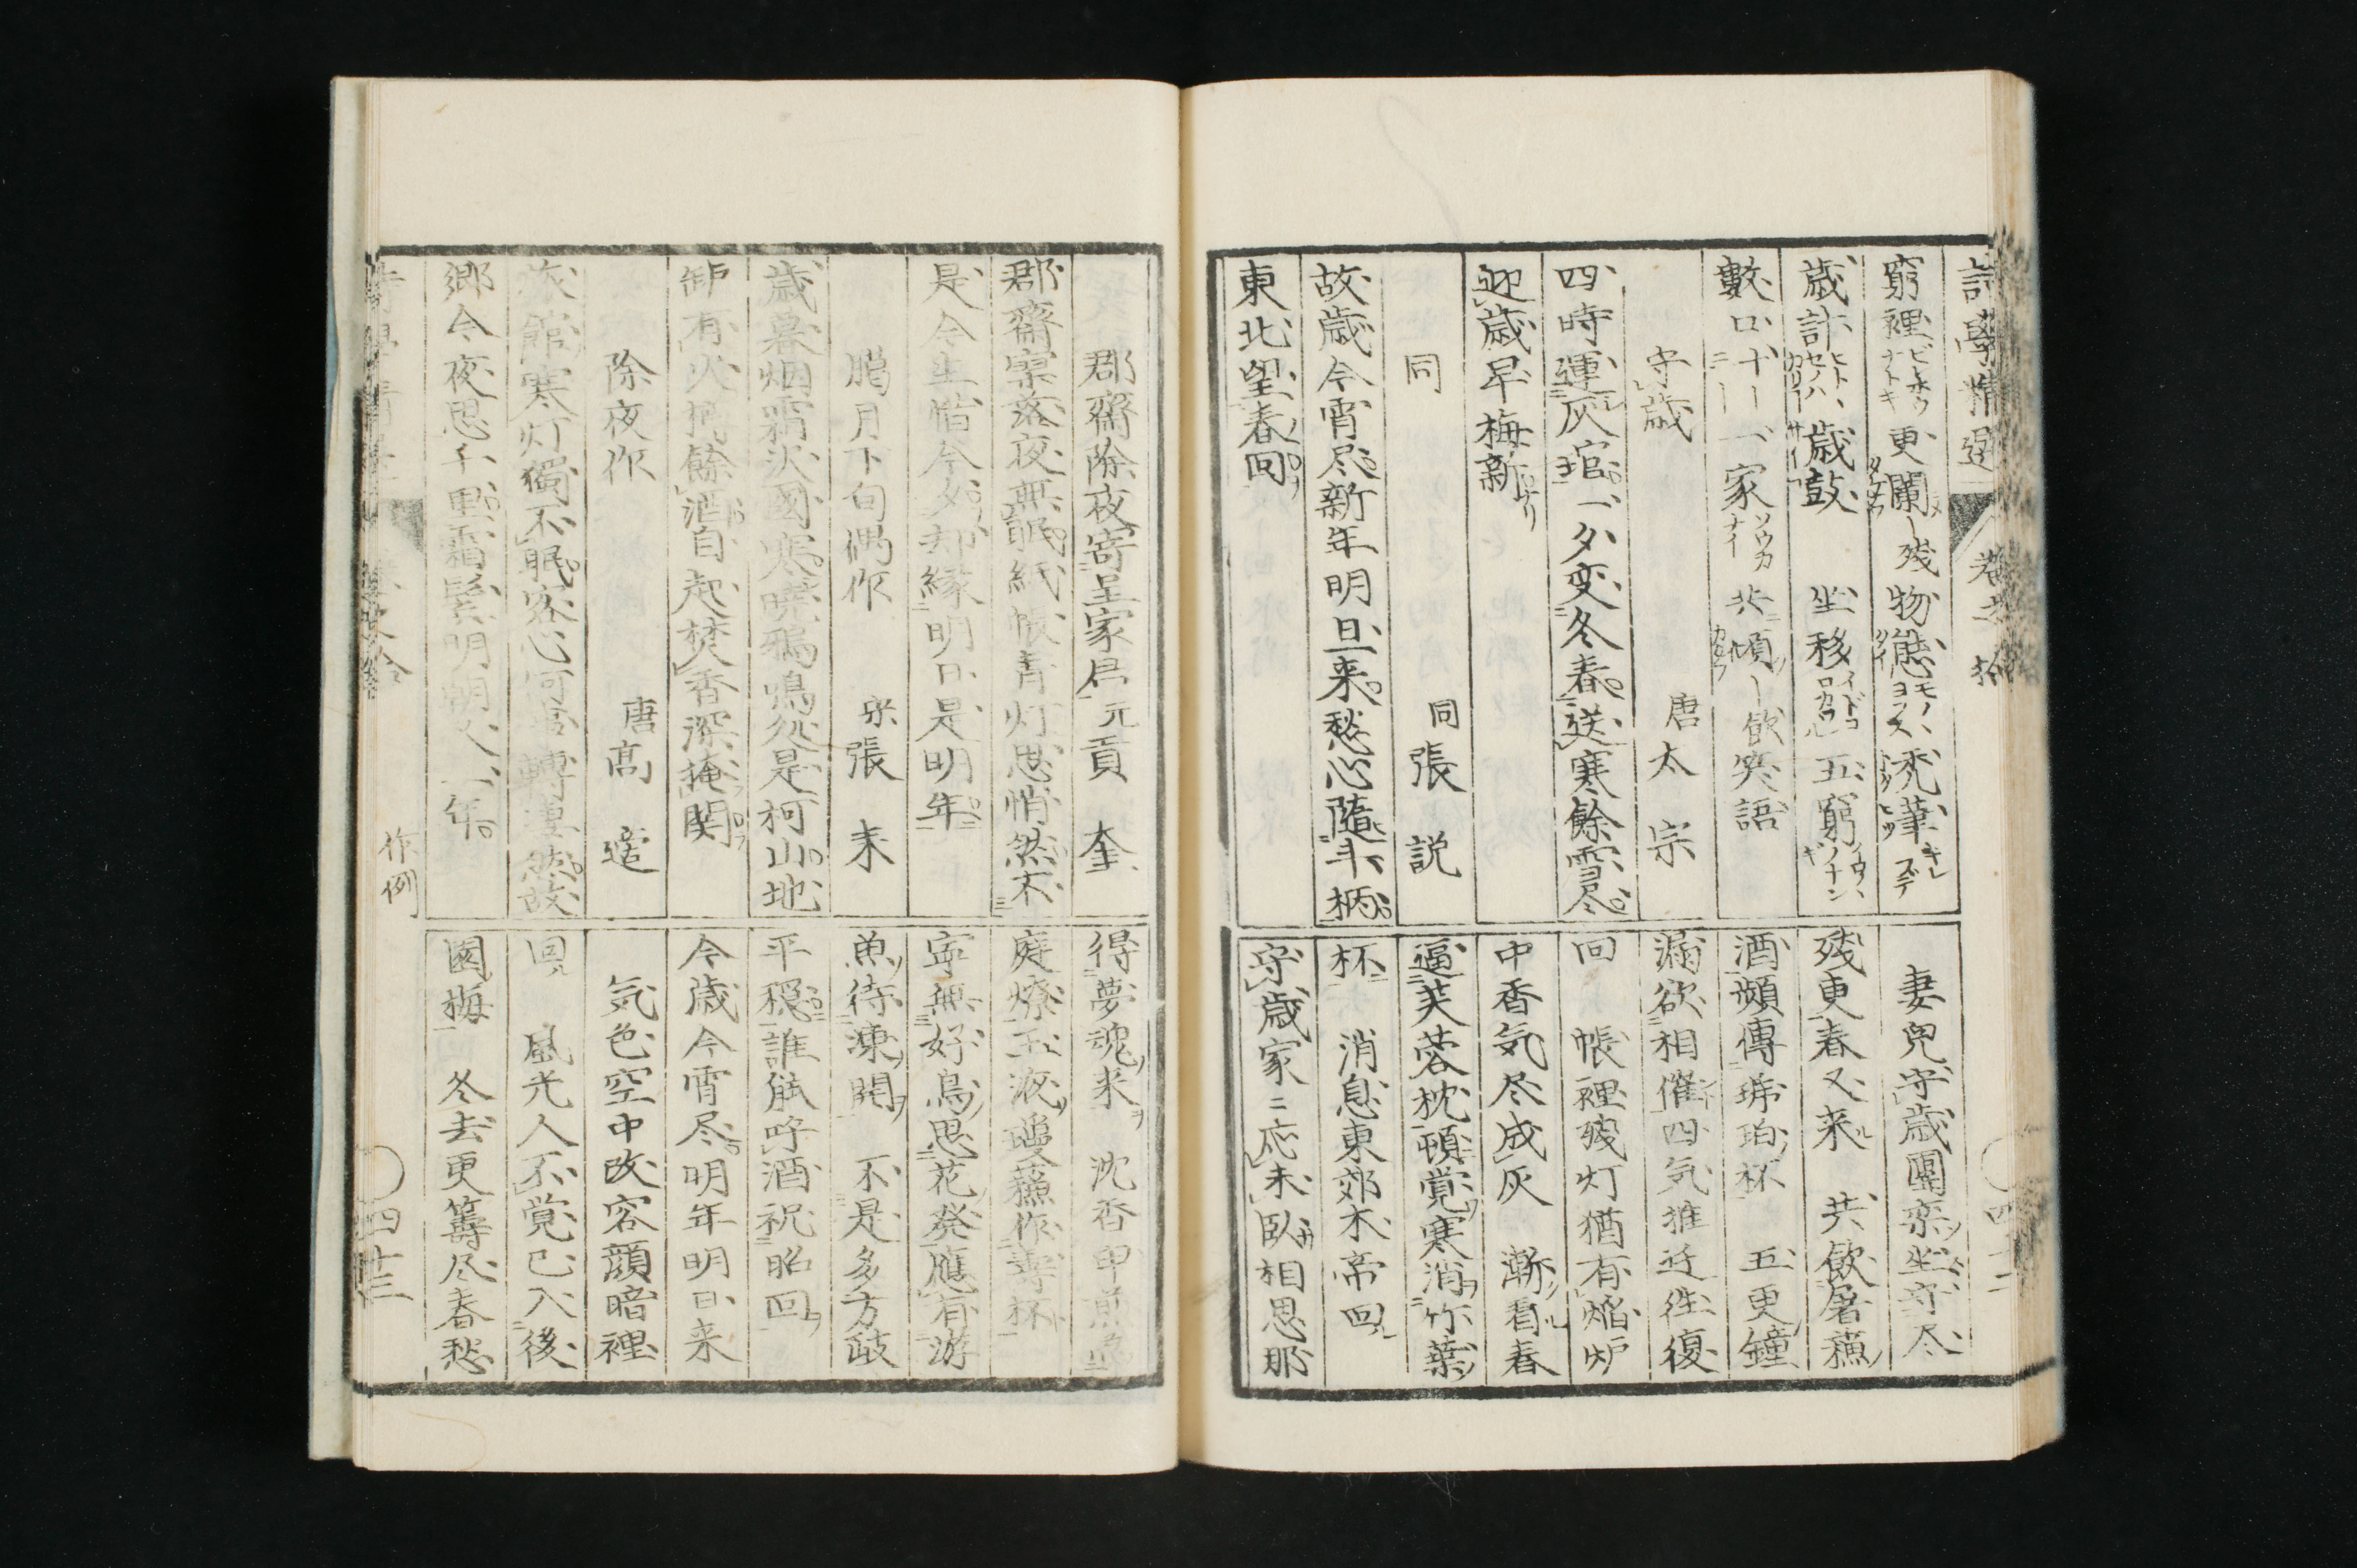 詩學精選 卷之 拾
窮裡 ビンホウナトキ 更闌 残物態 モノヽヨフス 禿筆 キレフデ
歳計 ヒトヽセノハカリ 歳鼓 坐移 イドコロカワル 五窮
數口 十 一家 共傾 飲笑語
守歳 唐太宗
四時運灰琯一夕変冬春送寒餘雪尽
迎歳早梅新
同 同張説
故歳今宵尽新年明旦来愁心随斗柄
東北望春回
妻兒守歳團欒坐守尽
残更春又来 共飲屠蘓
酒頻傳琥珀杯 五更鐘
漏欲相催四気推迁往復
回 帳裡残灯猶有焔炉
中香気尽成灰 漸看春
逼芙蓉枕頓覚寒消竹葉
杯 消息東郊木帝回
守歳家ニ応未臥相思那
郡齋除夜寄呈家君 元貢奎
郡齋寥落夜無眠紙帳青灯思悄然不
是今生惜今夕却縁明日是明年
臘月下旬偶作 宋張耒
歳暮烟霜沢國寒暁鴉鳴処是柯山地
炉有火狥餘酒自起焚香深掩関
除夜作 唐高適
旅館寒灯獨不眠客心何事轉凄然故
郷今夜思千里霜鬂明朝又一年
得夢魂来 沈香甲煎
庭燎玉液蘓作壽杯
寧無好鳥思花發應有游
魚待凍開 不是多方敲
平穏誰能呼酒祝昭回
今歳今宵尽明年明日来
気色空中改容顔暗裡
回 風光人不覚已入後
園梅 冬去更籌尽春愁
作例
四十三